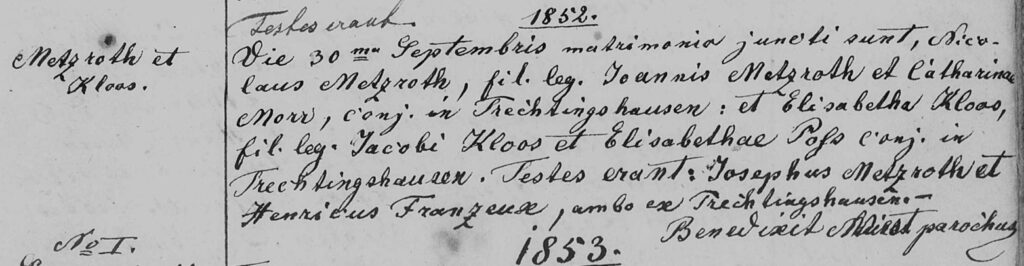 Testes erant
1852.
Metzroth et
Kloos.
Die 30 ma Septembris matrimonio juncti sunt, Nico-
laus Metzroth, fil. leg. Joannis Metzroth et Catharinae
Morr, conj. in Trechtingshausen: et Elisabetha Kloos,
fil. leg. Jacobi Kloos et Elisabethae Poſs conj. in
Trechtingshausen. Testes erant: Josephus Metzroth et
Henricus Franzeux, ambo ex Trechtingshausen.-
Benedixit parochus
No I.
1853.